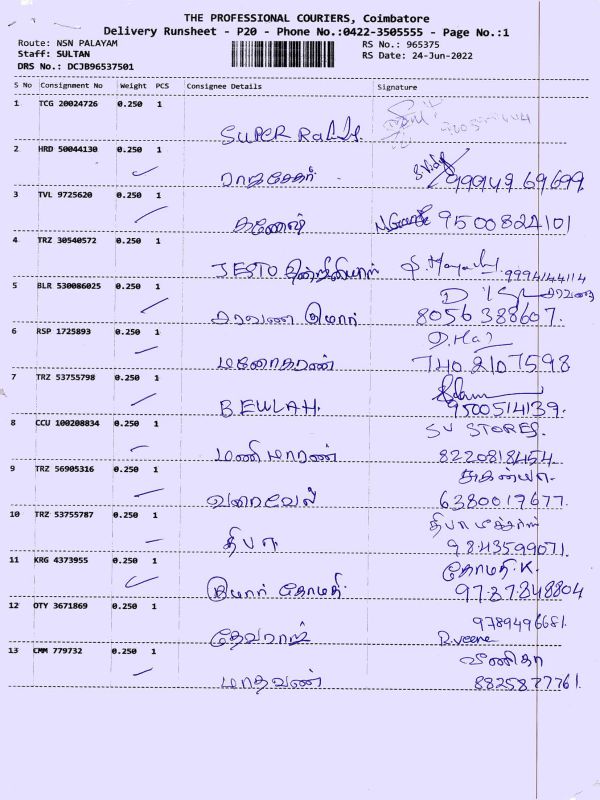 THE PROFESSIONAL COURIERS, Coimbatore
Delivery Runsheet - P20 - Phone No.:0422-3505555 - Page No.:1
Route: NSN PALAYAM
Staff: SULTAN
DRS No.: DCJB96537501
RS No.: 965375
RS Date: 24-Jun-2022
S No Consignment No Weight PCS Consignee Details Signature
1 TCG 20024726 0.250 1
SUPER
2 HRD 50044130 0.250 1
ராஜசேகர் 99942 69699
3 TVL 9725620 0.250 1
கணேஷ் 9500824101
4 TRZ 30540572 0.250 1
JESTO 9994144114
5 BLR 530086025 0.250 1
சரவண குமார் 8056388607.
6 RSP 1725893 0.250 1
மனோகரண் 7402107598
7 TRZ 53755798 0.250 1
BEULAH. 9500514139.
8 CCU 100208834 0.250 1 SV STORES.
மணிமாரண் 8220818454.
9 TRZ 56905316 0.250 1 சுகன்யா.
6380019677.
10 TRZ 53755787 0.250 1
தீபா 9843599071.
11 KRG 4373955 0.250 1 கோமதி.K.
குமார் கோமதி. 9787848804
12 OTY 3671869 0.250 1 9789496681.
தேவராஜ் R.veena
13 CMM 779732 0.250 1
மாதவண் 8825877761.